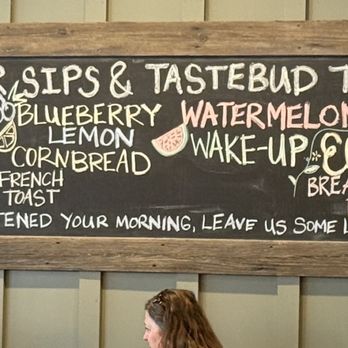 SIPS & TASTEBUD
BLUEBERRY
LEMON
CORNBREAD
FRENCH
TOAST
WATERMELON
WAKE-UP
YOUR MORNING, LEAVE US SOME